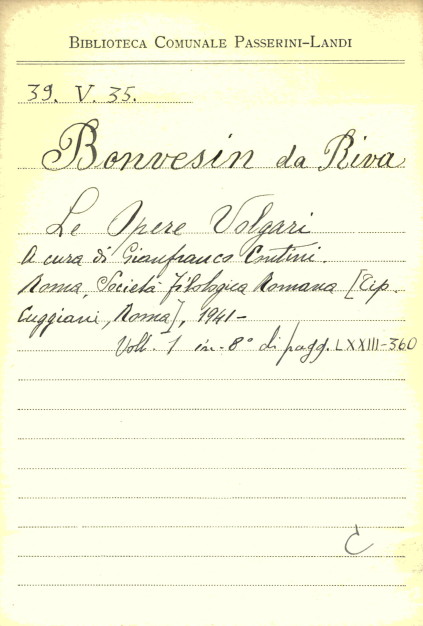 BIBLIOTECA COMUNALE PASSERINI-LANDI
39. V. 35.
Bonvesin da Riva
Le Opere Volgari
A cura di Gianfranco Contini.
Roma, Società Filologica Romana [Tip.
Cuggiani, Roma], 1941-
Voll. 1 in-8° di pagg. LXXIII-360
C